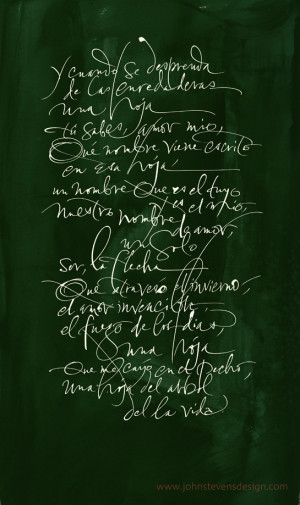 Y cuando se desprenda
de las enredaderas
una hoja
tú sabes, amor mío,
Qué nombre viene escrito
en esa hoja,
un nombre que es el tuyo
y es el mío,
nuestro nombre
de amor,
un solo
ser, la flecha
Que atravesó el invierno,
el amor invencible,
el fuego de los días
una hoja
Que me cayó en el pecho,
una hoja del arbol
de la vida
www.johnstevensdesign.com